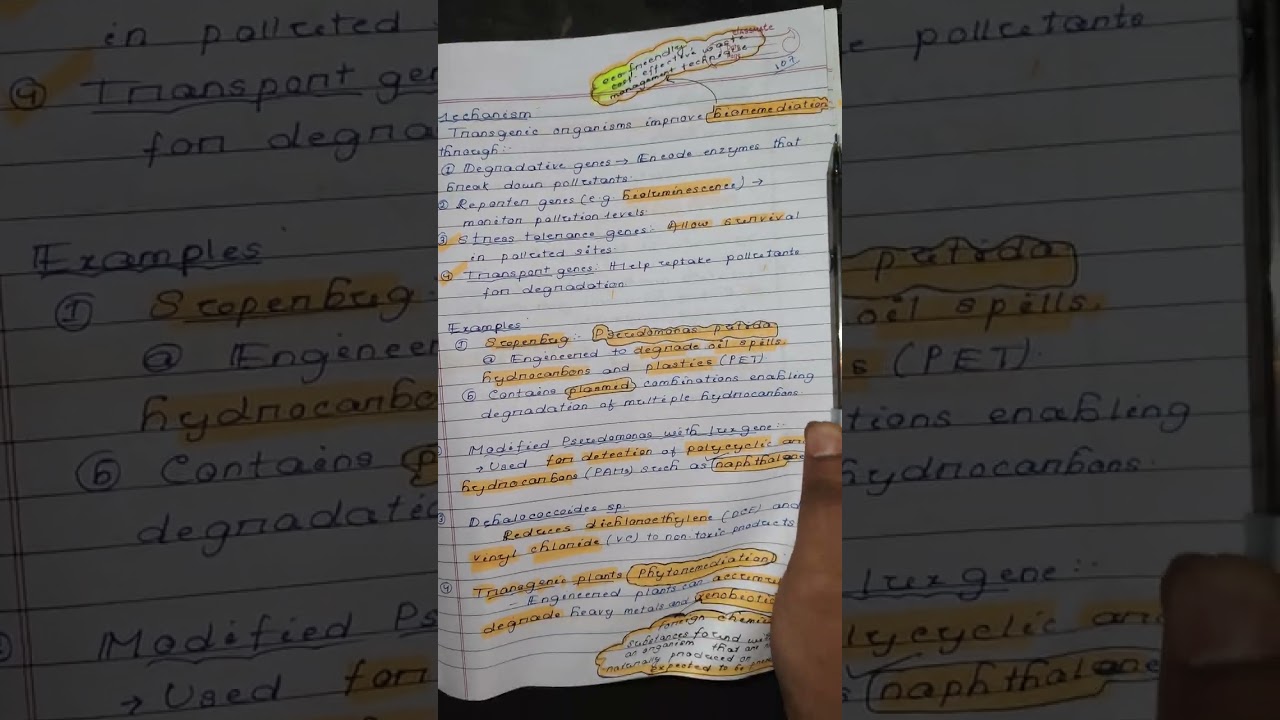 eco-friendly
cost effective waste
management technique
Mechanism
Transgenic organisms improve bioremediation
through:-
① Degradative genes → Encode enzymes that
break down pollutants.
② Reporter genes (e.g. bioluminescence) →
monitor pollution levels.
③ Stress tolerance genes: Allow survival
in polluted sites.
④ Transport genes: Help uptake pollutants
for degradation.
Examples
① Superbug:- Pseudomonas putida
ⓐ Engineered to degrade oil spills,
hydrocarbons and plastics (PET)
ⓑ Contains plasmid combinations enabling
degradation of multiple hydrocarbons.
Modified Pseudomonas with lux gene:-
→ Used for detection of polycyclic aro
hydrocarbons (PAHs) such as naphthalene
Dehalococcoides sp.
Reduces dichloroethylene (DCE) and
vinyl chloride (VC) to non-toxic products
④ Transgenic plants (Phytoremediation)
- Engineered plants can accumu
degrade heavy metals and xenobiotic
foreign chemic
substances found with
an organism that are
naturally produced or
expected to be